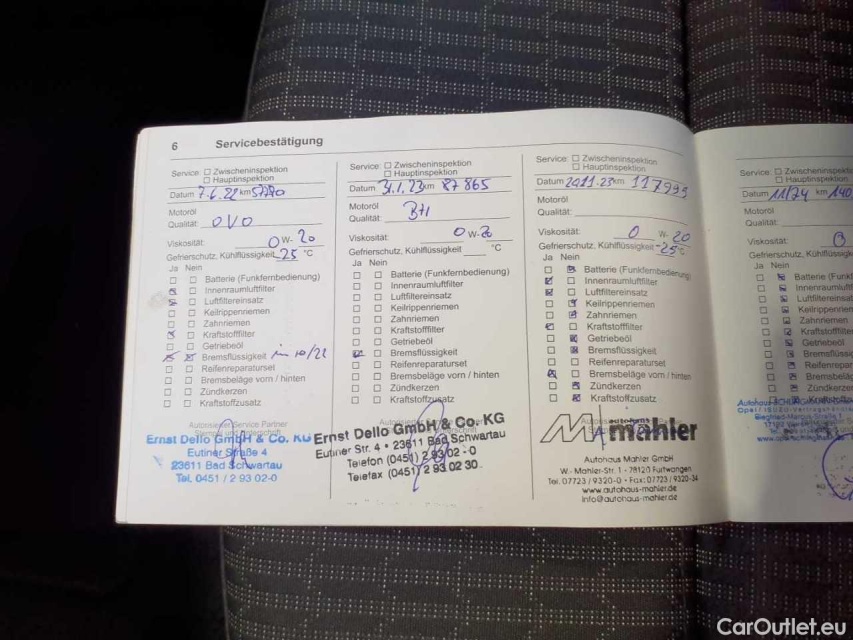 6 Servicebestätigung
Service: ☐ Zwischeninspektion
☐ Hauptinspektion
Datum 7.6.22 km
Motoröl
Qualität: OVO
Viskosität: 0 W- 20
Gefrierschutz, Kühlflüssigkeit -25 °C
Ja Nein
Batterie (Funkfernbedienung)
Innenraumluftfilter
Luftfiltereinsatz
Keilrippenriemen
Zahnriemen
Kraftstofffilter
Getriebeöl
Bremsflüssigkeit im 10/22
Reifenreparaturset
Bremsbeläge vorn / hinten
Zündkerzen
Kraftstoffzusatz
Autorisierter Service Partner
Ernst Dello GmbH & Co. KG
Eutiner Straße 4
23611 Bad Schwartau
Tel. 0451 / 2 93 02-0
Service: ☐ Zwischeninspektion
☐ Hauptinspektion
Datum 31.1.23 km 87865
Motoröl
Qualität:
Viskosität: 0 W- 20
Gefrierschutz, Kühlflüssigkeit °C
Ja Nein
Batterie (Funkfernbedienung)
Innenraumluftfilter
Luftfiltereinsatz
Keilrippenriemen
Zahnriemen
Kraftstofffilter
Getriebeöl
Bremsflüssigkeit
Reifenreparaturset
Bremsbeläge vorn / hinten
Zündkerzen
Kraftstoffzusatz
Ernst Dello GmbH & Co. KG
Eutiner Str. 4 • 23611 Bad Schwartau
Telefon (0451) 2 93 02 - 0
Telefax (0451) 2 93 02 30
Service: ☐ Zwischeninspektion
☐ Hauptinspektion
Datum 20.11.23 km 117993
Motoröl
Qualität:
Viskosität: 0 W- 20
Gefrierschutz, Kühlflüssigkeit -25 °C
Ja Nein
Batterie (Funkfernbedienung)
Innenraumluftfilter
Luftfiltereinsatz
Keilrippenriemen
Zahnriemen
Kraftstofffilter
Getriebeöl
Bremsflüssigkeit
Reifenreparaturset
Bremsbeläge vorn / hinten
Zündkerzen
Kraftstoffzusatz
mahler
Autohaus Mahler GmbH
W.- Mahler-Str. 1 - 78120 Furtwangen
Tel. 07723 / 9320-0 - Fax: 07723 / 9320-34
www.autohaus-mahler.de
info@autohaus-mahler.de
Service: ☐ Zwischeninspektion
☐ Hauptinspektion
Datum 11/24 km 140
Motoröl
Qualität:
Viskosität: 0
Gefrierschutz, Kühlflüssigk
Ja Nein
Batterie (Funkf
Innenraumluftfi
Luftfiltereinsat
Keilrippenriemen
Zahnriemen
Kraftstofffilter
Getriebeöl
Bremsflüssig
Reifenrepara
Bremsbeläg
Zündkerzen
Autohaus
CarOutlet.eu